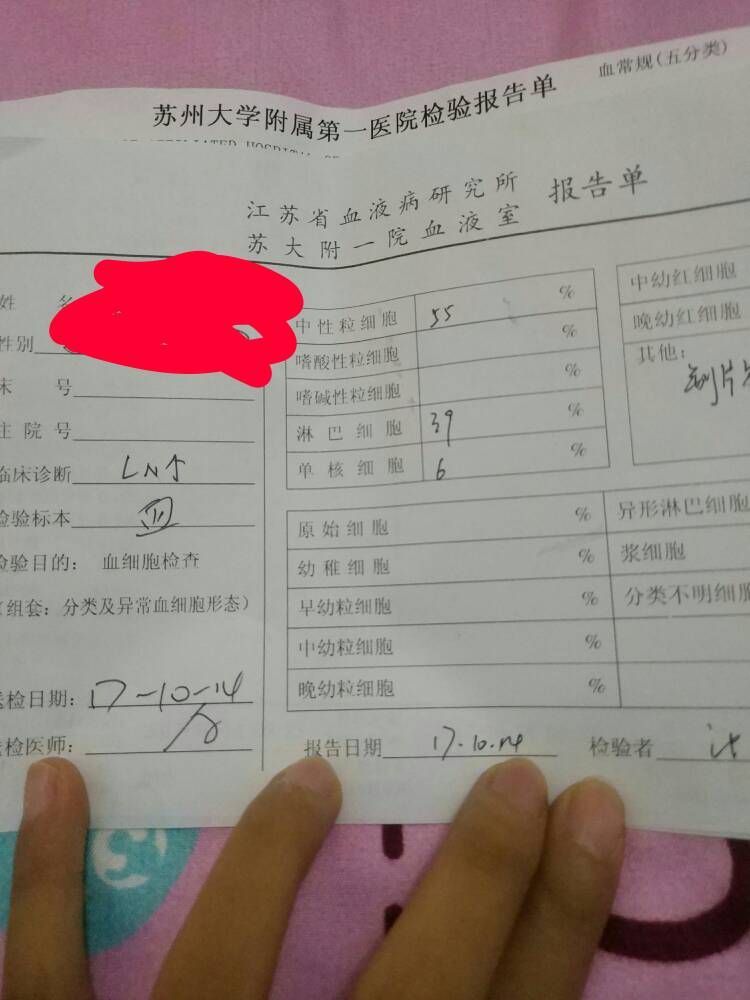 血常规(五分类)
苏州大学附属第一医院检验报告单
江苏省血液病研究所
苏大附一院血液室
报告单
姓 名
性别
床 号
住 院 号
临床诊断 LN↑
检验标本 血
检验目的: 血细胞检查
(组套: 分类及异常血细胞形态)
送检日期: 17-10-14
送检医师:
中性粒细胞 55 %
嗜酸性粒细胞 %
嗜碱性粒细胞 %
淋巴细胞 39 %
单核细胞 6 %
中幼红细胞
晚幼红细胞
其他:
原始细胞 %
幼稚细胞 %
早幼粒细胞 %
中幼粒细胞 %
晚幼粒细胞 %
异形淋巴细胞
浆细胞
分类不明细胞
报告日期 17.10.14
检验者